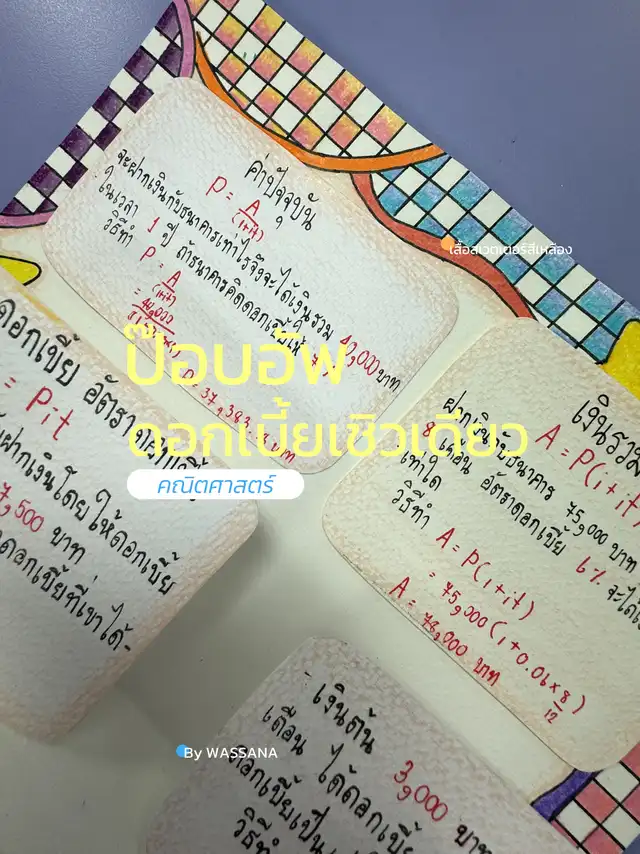 ค่าปัจจุบัน
P = A
(1+it)
จะฝากเงินกับธนาคารเท่าไรจึงจะได้เงินรวม 40,000 บาท
ในเวลา 1 ปี ถ้าธนาคารคิดดอกเบี้ยให้
วิธีทำ
P = A
(1+it)
= 40,000
เสื้อสเวตเตอร์สีเหลือง
ป๊อบอัพ
ดอกเบี้ยเชิงเดี่ยว
คณิตศาสตร์
ดอกเบี้ย อัตรา
= Pit
ฝากเงินโดยให้ดอกเบี้ย
7,500 บาท
ดอกเบี้ยที่เขาได้-
เงินรวม
A = P(1+it)
ฝากเงินกับธนาคาร 75,000 บาท
8 เดือน อัตราดอกเบี้ย 6% จะได้
เท่าใด
วิธีทำ
A = P(1+it)
= 75,000 (1+0.06 × 8)
12
A = 78,000 บาท
By WASSANA
เงินต้น 3,000 บาท
เดือน ได้ดอกเบี้ย
ดอกเบี้ยเป็น
วิธีทำ